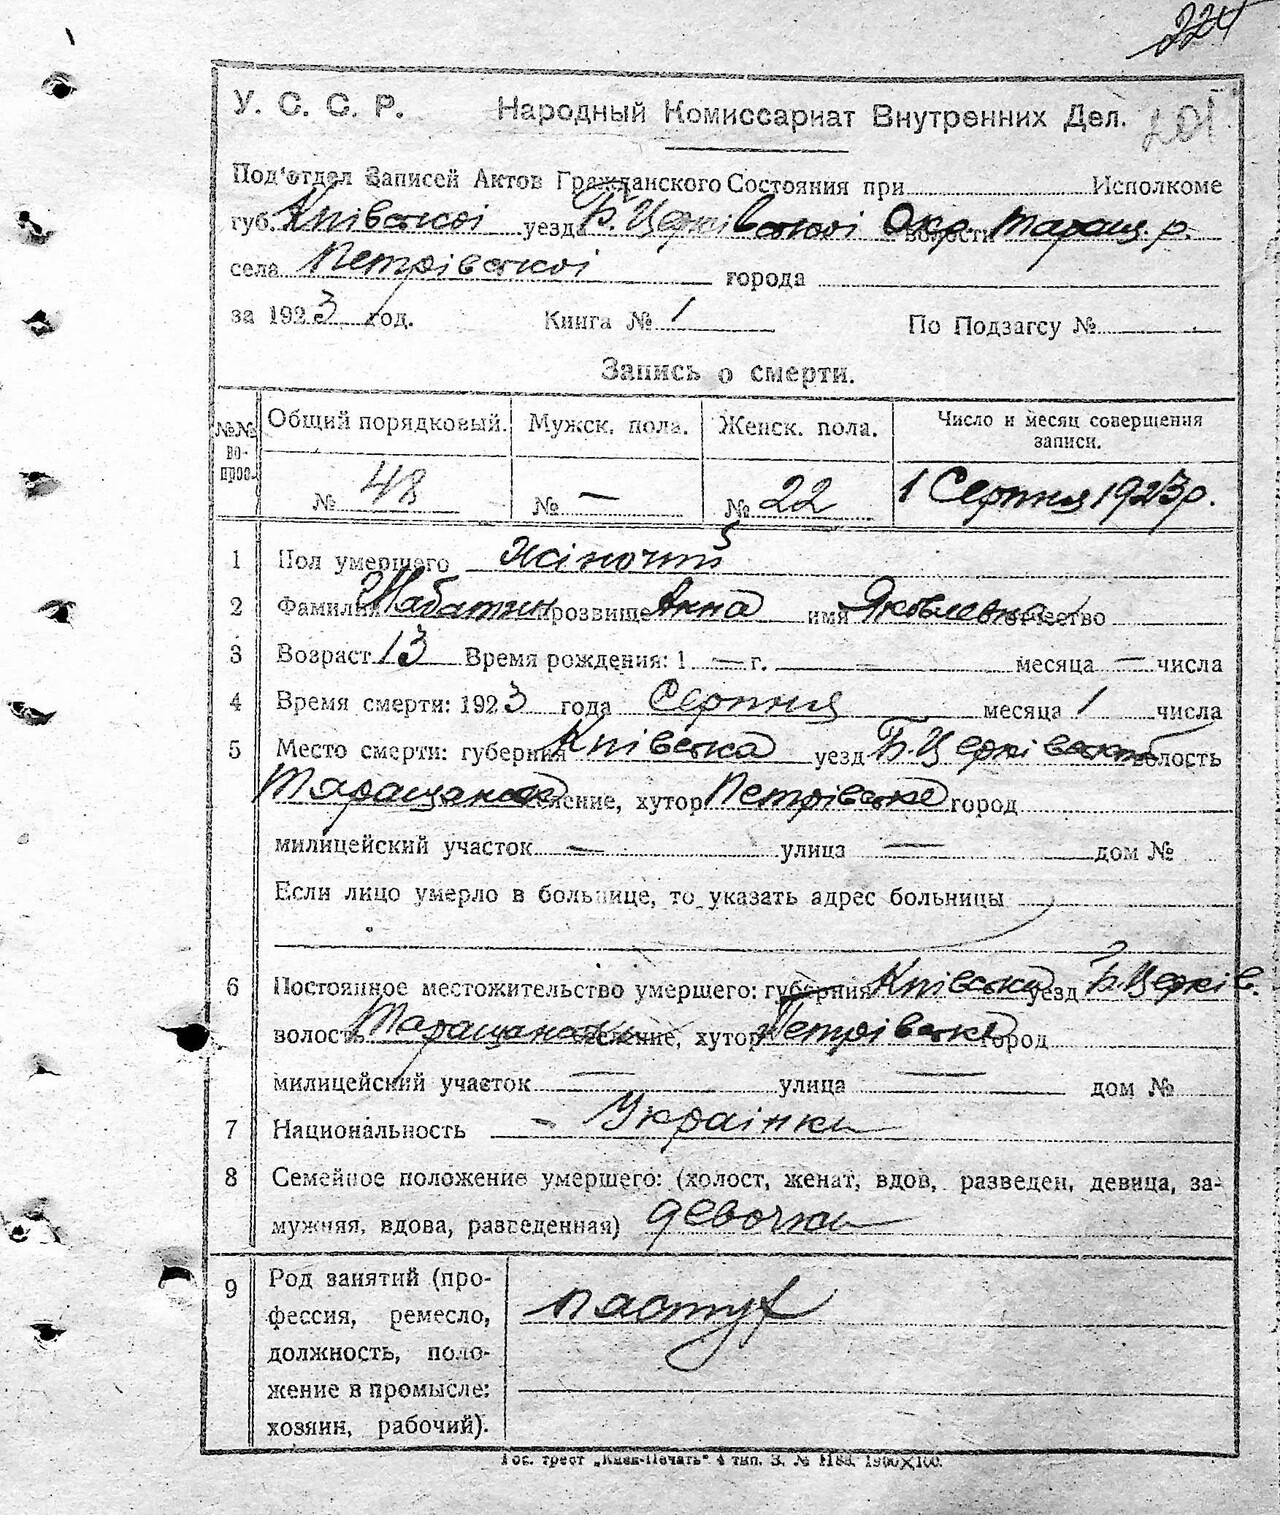 224
У. С. С. Р. Народный Комиссариат Внутренних Дел. 201
Под'отдел Записей Актов Гражданского Состояния при Исполкоме
губ. Київської уезда Б. Церківської Окр. волости Таращ. р.
села Петрівської города
за 1923 год. Книга № 1 По Подзагсу №
Запись о смерти.
№№ вопрос. Общий порядковый. Мужск. пола. Женск. пола. Число и месяц совершения записи.
№ 48 № — № 22 1 Серпня 1923 р.
1 Пол умершего Жіночий
2 Фамилия Шабатин прозвище Анна имя Яковлевна отчество
3 Возраст 13 Время рождения: 1 — г. — месяца — числа
4 Время смерти: 1923 года Серпня месяца 1 числа
5 Место смерти: губерния Київська уезд Б. Церківської волость
Таращанск селение, хутор Петрівське город
милицейский участок — улица — дом №
Если лицо умерло в больнице, то указать адрес больницы
6 Постоянное местожительство умершего: губерния Київська уезд Б. Церків.
волость Таращанська селение, хутор Петрівське город
милицейский участок — улица — дом №
7 Национальность — Українка
8 Семейное положение умершего: (холост, женат, вдов, разведен, девица, за-
мужняя, вдова, разведенная) девочка
9 Род занятий (про- пастух
фессия, ремесло,
должность, поло-
жение в промысле:
хозяин, рабочий).
Гос. трест „Киев-Печать" 4 тип. З. № 1183. 1900×100.